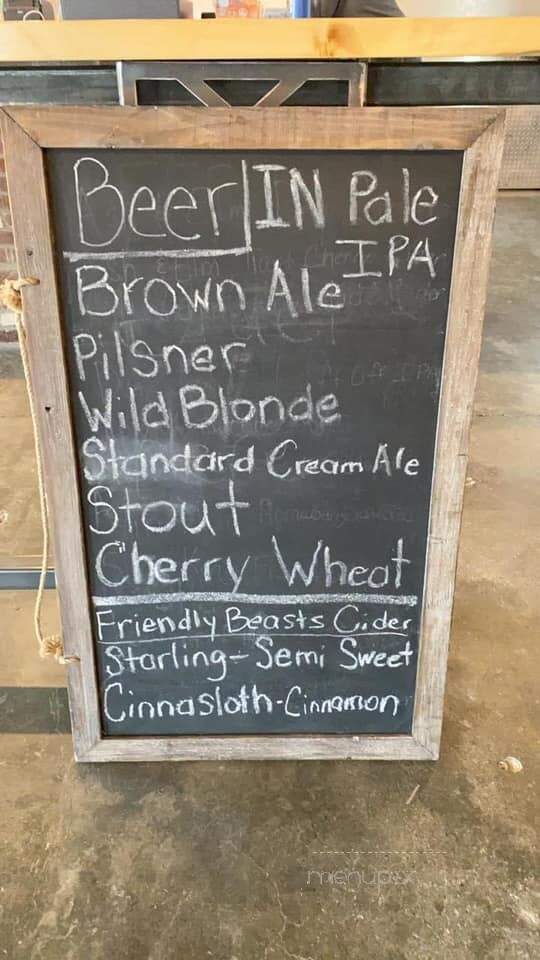 Beer IN Pale
IPA
Brown Ale
Pilsner
Wild Blonde
Standard Cream Ale
Stout
Cherry Wheat
Friendly Beasts Cider
Starling - Semi Sweet
Cinnasloth - Cinnamon